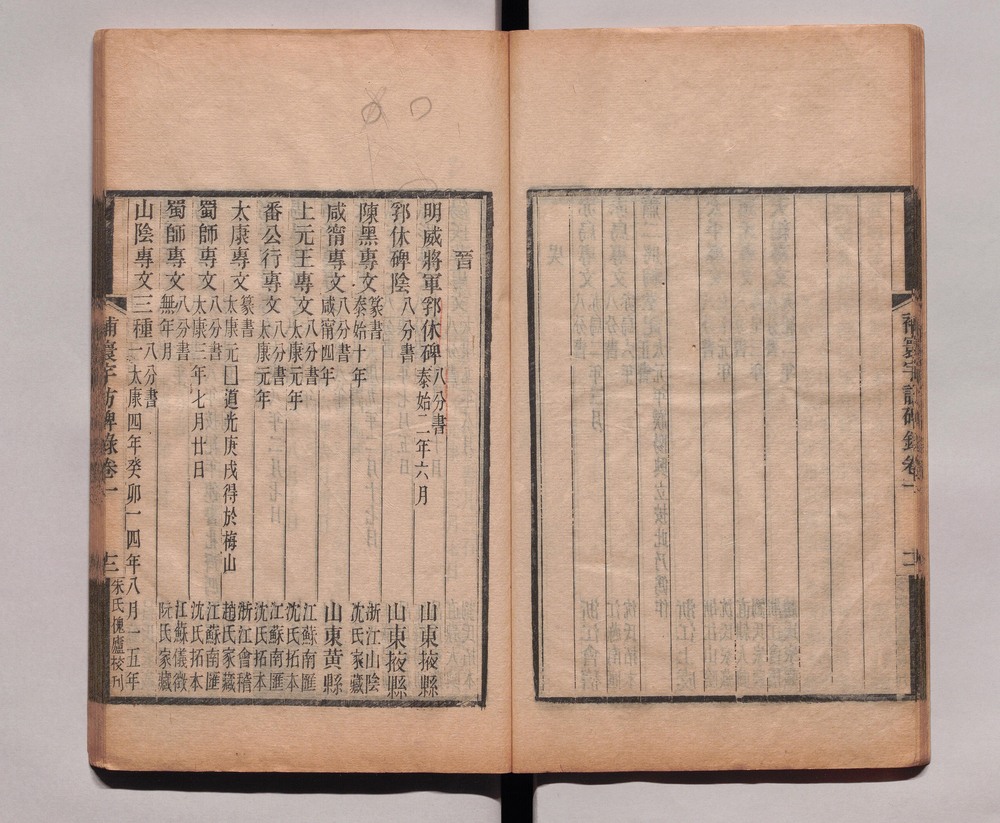 補寰宇訪碑錄卷一
晉
明威將軍郛休碑 八分書 泰始二年六月 山東掖縣
郛休碑陰 八分書 山東掖縣
陳黑專文 篆書 泰始十年 浙江山陰 沈氏家藏
咸甯專文 八分書 咸甯四年 山東黃縣
上元王專文 八分書 太康元年 江蘇南匯 沈氏拓本
番公行專文 八分書 太康元年 江蘇南匯 沈氏拓本
太康專文 篆書 太康元囗道光庚戌得於梅山 浙江會稽 趙氏家藏
蜀師專文 八分書 太康三年七月廿日 江蘇南匯 沈氏拓本
蜀師專文 八分書 無年月 江蘇儀徵 阮氏家藏
山陰專文三種 八分書 一太康四年癸卯一四年八月一五年
補寰宇訪碑錄卷一 十二 朱氏槐廬校刊